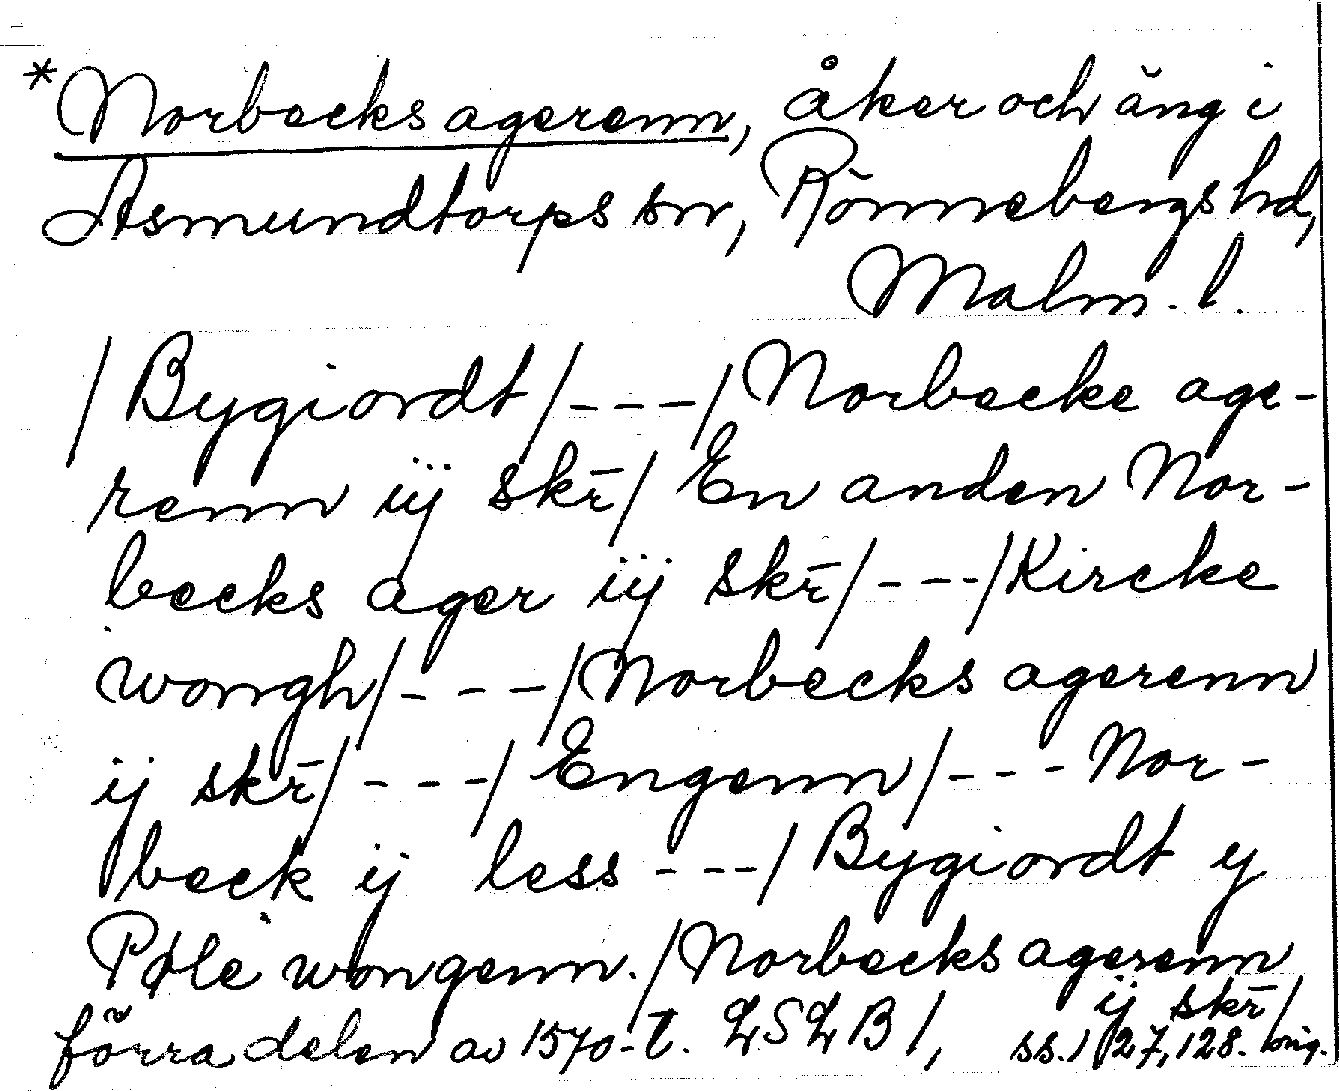 *Norbecks agerenn, åker och äng i
Asmundtorps sn, Rönnebergs hd,
Malm. l.
/Bygiordt/---/Norbecke age-
renn iij skr̄/ En anden Nor-
becks ager iij skr̄/---/Kircke
wongh/---/Norbecks agerenn
ij skr̄/---/Engenn/---Nor-
beck ij less ---/Bygiordt y
Pøle wongenn./Norbecks agerenn
ij skr̄/
förra delen av 1570-t. LSLB 1, ss. 127, 128. orig.